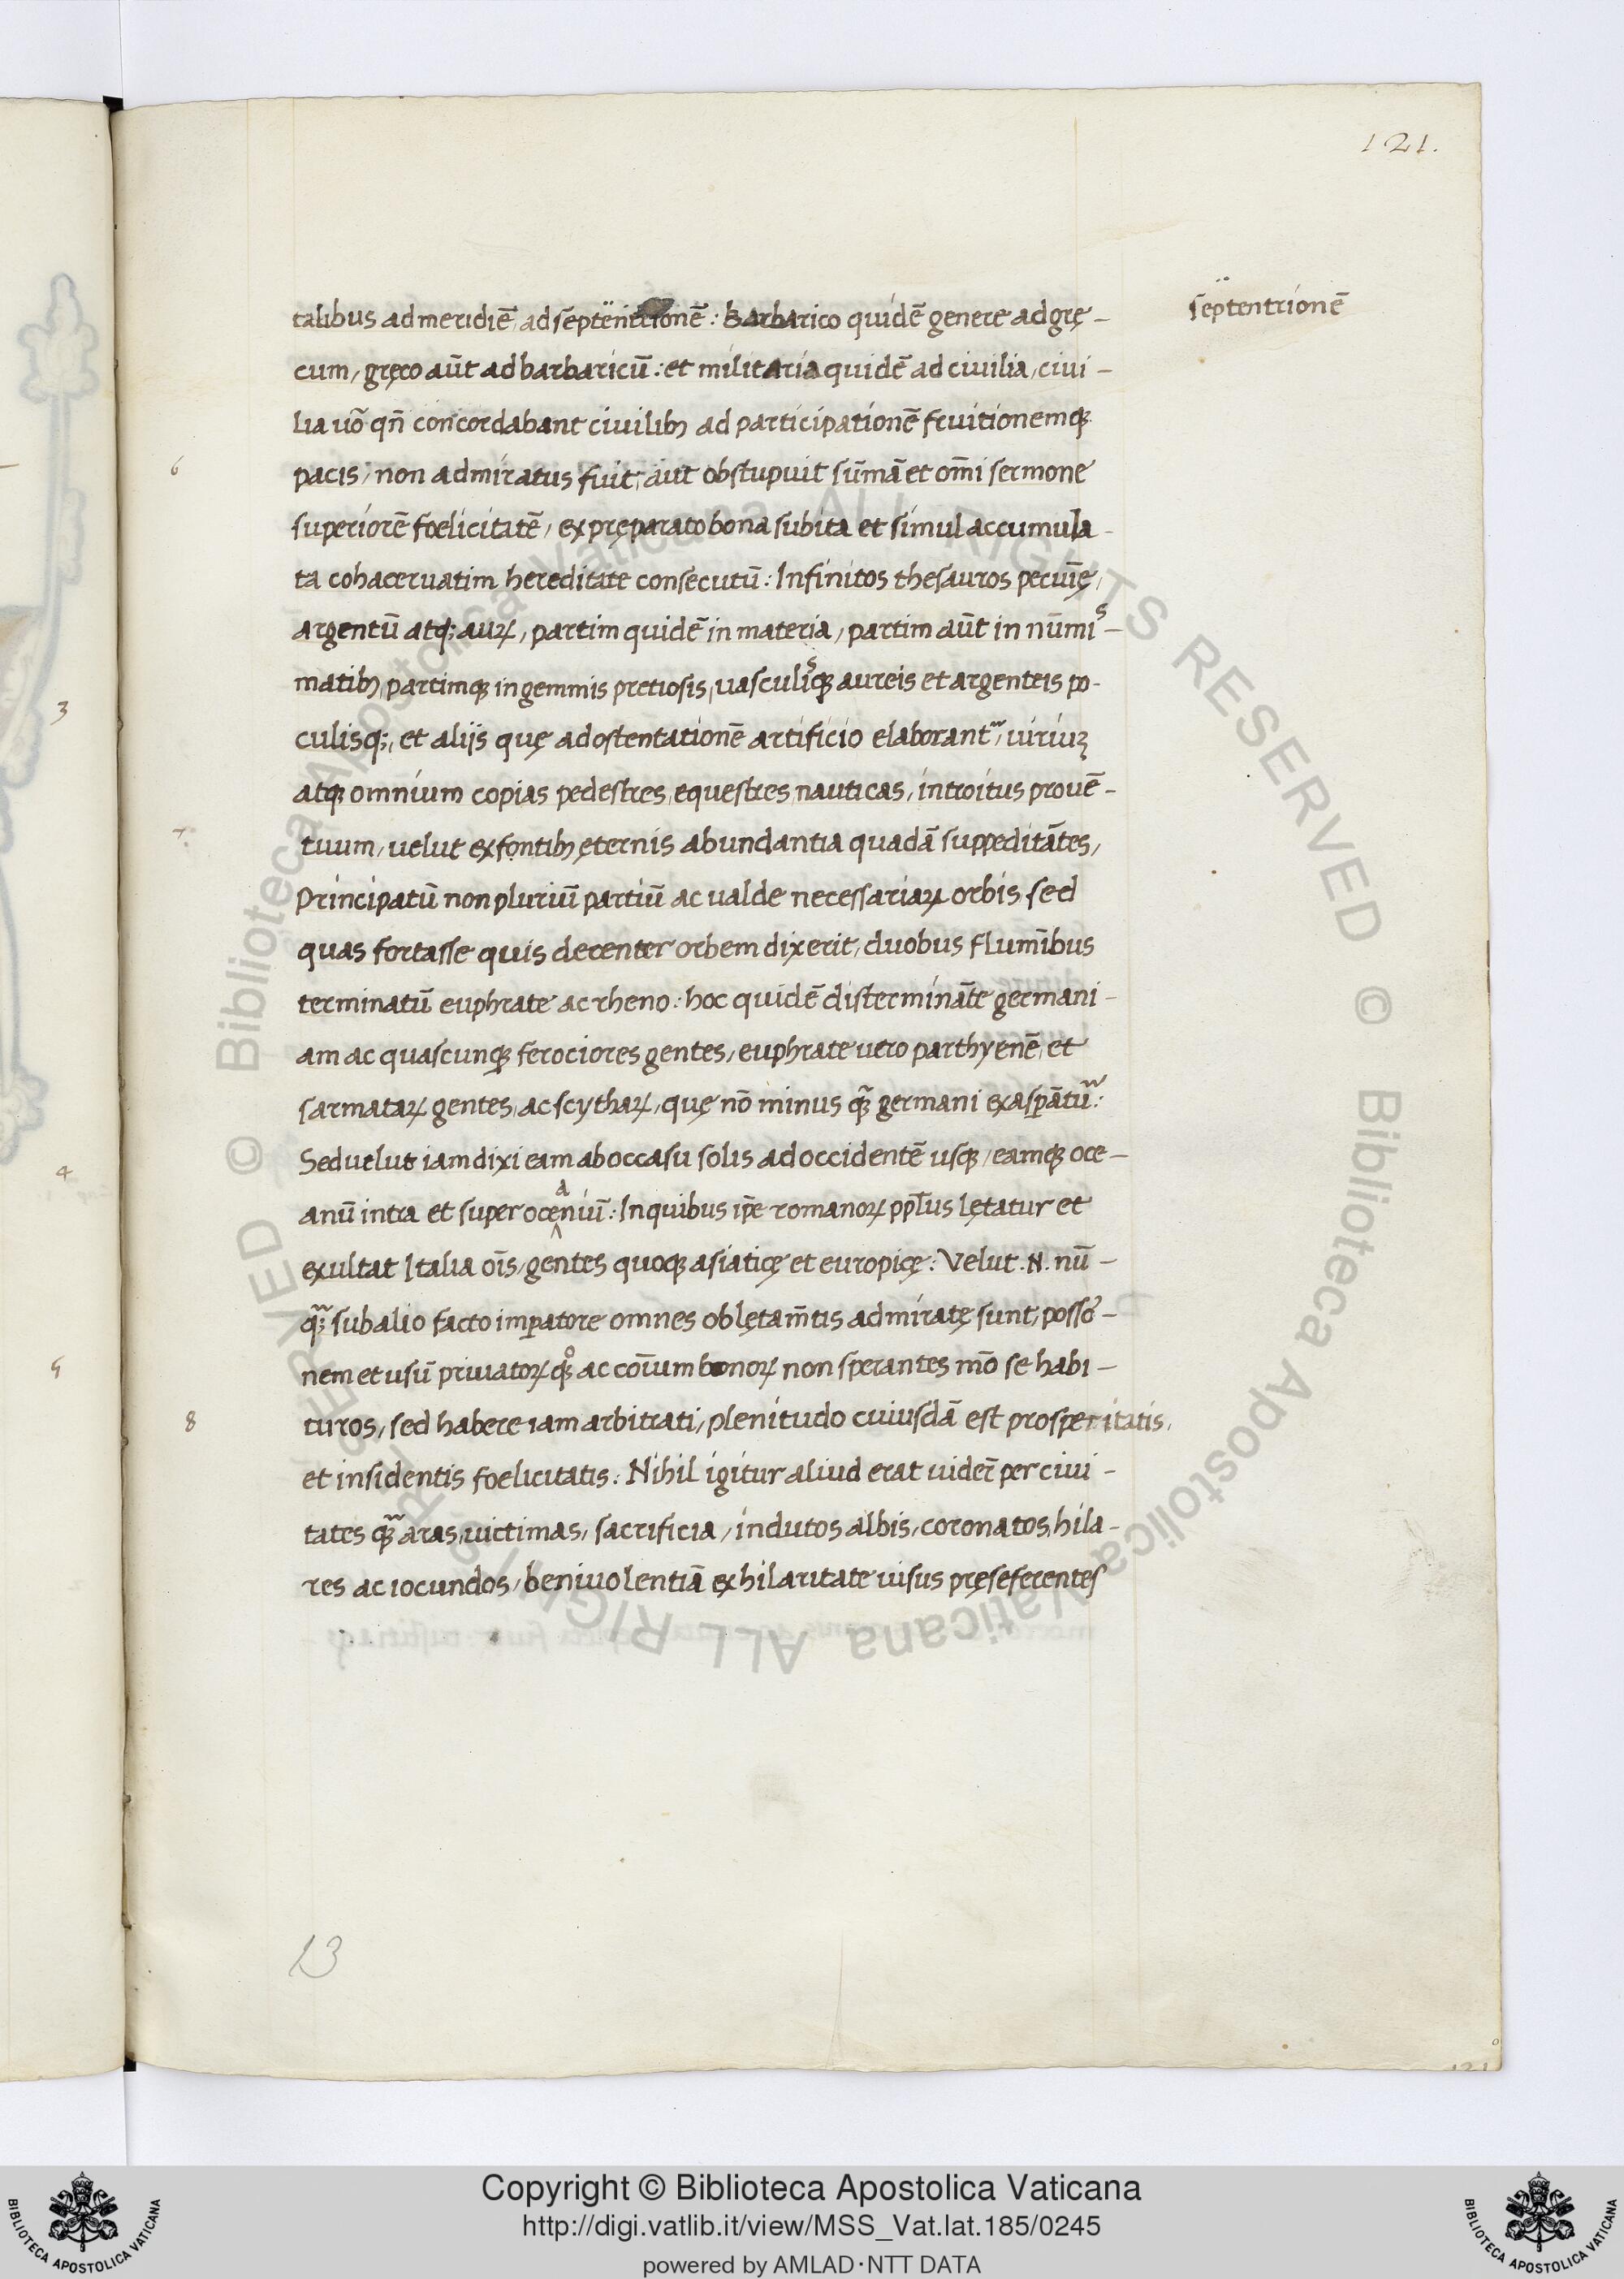 121.
talibus ad meridiē, ad sēptentrionē: Barbarico quidē genere ad grę-
sēptentrionē
cum, gręco aūt ad barbaricū: et militaria quidē ad ciuilia, ciui-
lia uō qn̄ concordabant ciuilibꝫ ad participationē fruitionemqꝫ
6
pacis, non admiratus fuit, aut obstupuit sūmā et om̄i sermone
superiorē foelicitatē, ex pręparato bona subita et simul accumula-
ta cohaceruatim hereditate consecutū: Infinitos thesauros pecun̄ię,
argentū atqꝫ auꝝ, partim quidē in materia, partim aūt in nūmis-
matibꝫ, partimqꝫ in gemmis pretiosis, uasculisqꝫ aureis et argenteis po-
culisqꝫ, et alijs quę ad ostentationē artificio elaborant᷑, uiriuꝫ
atqꝫ omnium copias pedestres, equestres, nauticas, introitus prouē-
7
tuum, uelut ex fontibꝫ ęternis abundantia quadā suppeditātes,
Principatū non pluriū partiū ac ualde necessariaꝝ orbis sed
quas fortasse quis decenter orbem dixerit, duobus flumībus
terminatū euphrate ac rheno: hoc quidē distermināte germani-
am ac quascunqꝫ ferociores gentes, euphrate uero parthyenē, et
sarmataꝝ gentes, ac scythaꝝ, quę nō minus qꝫ̃ germani exasꝑāt᷑:
Sed uelut iam dixi eam ab occasu solis ad occidentē usqꝫ, eamqꝫ oce-
anū intra et super oceaniū: In quibus ip̄e romanoꝝ pp̄lus lętatur et
exultat Italia oīs, gentes quoqꝫ asiaticę et europicę: Velut .N. nū-
qꝫ̃ sub alio facto imꝑatore omnes oblętam̄tis admiratę sunt, possō-
nem et usū priuatoꝝ qꝫ° ac cōium bonoꝝ non sperantes mō se habi-
8
turos, sed habere iam arbitrati, plenitudo cuiusdā est prosperitatis,
et insidentis foelicitatis: Nihil igitur aliud erat uider̄ per ciui-
tates qꝫ̃ aras, uictimas, sacrificia, indutos albis, coronatos, hila-
res ac iocundos, beniuolentiā ex hilaritate uisus pręseferentes
13
3
4
5
121
Copyright © Biblioteca Apostolica Vaticana
http://digi.vatlib.it/view/MSS_Vat.lat.185/0245
powered by AMLAD·NTT DATA
BIBLIOTECA APOSTOLICA VATICANA
BIBLIOTECA APOSTOLICA VATICANA
© Biblioteca Apostolica Vaticana ALL RIGHTS RESERVED © Biblioteca Apostolica Vaticana ALL RIGHTS RESERVED